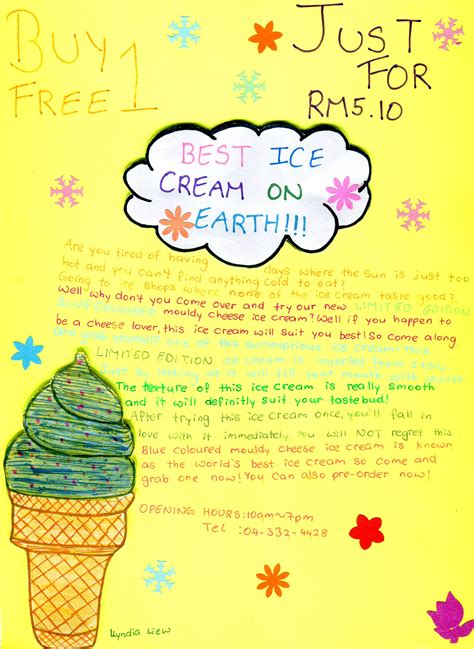 BUY 1
FREE
JUST
FOR
RM5.10
BEST ICE
CREAM ON
EARTH!!!
Are you tired of having days where the sun is just too
hot and you can't find anything cold to eat?
Going to ice shops where none of the ice cream taste good?
Well why don't you come over and try our new LIMITED EDITION
BLUE COLOURED mouldy cheese ice cream? Well if you happen to
be a cheese lover, this ice cream will suit you best! So come along
and grab yourself one of this scrumptious ice cream. This
LIMITED EDITION ice cream is imported from Italy.
Just by looking at it will fill your mouth with water.
The texture of this ice cream is really smooth
and it will definitly suit your tastebud!
After trying this ice cream once, you'll fall in
love with it immediately, you will NOT regret this
Blue coloured mouldy cheese ice cream is known
as the world's best ice cream so come and
grab one now! You can also pre-order now!
OPENING HOURS: 10am~7pm
Tel : 04-332-4428
Liew